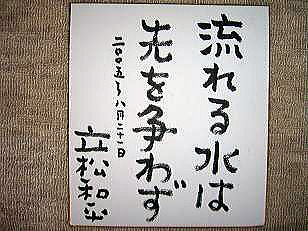 流れる水は
先を争わず
二〇〇五年八月二十一日
立松和平